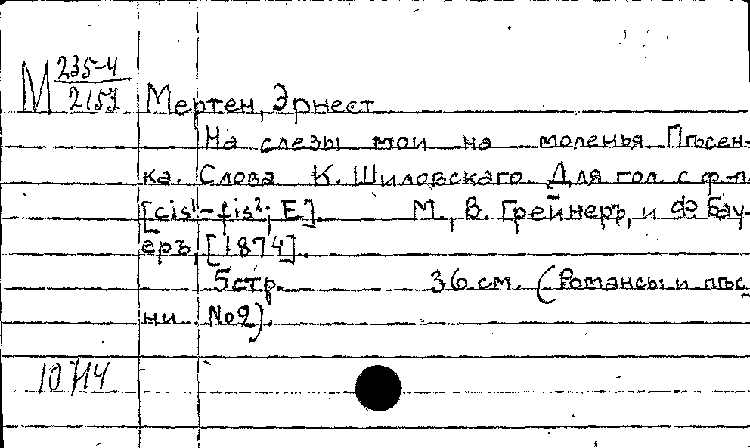 М 235-4
2157 Мертен, Эрнест
На слезы мои на моленья Пѣсен-
ка. Слова К. Шиловскаго. Для гол. с ф-п.
[cis¹-fis²; E]. М., В. Грейнеръ, и де Бау-
еръ, [1874].
5стр. 36 см. (Романсы и пѣс
ни. №2).
10714